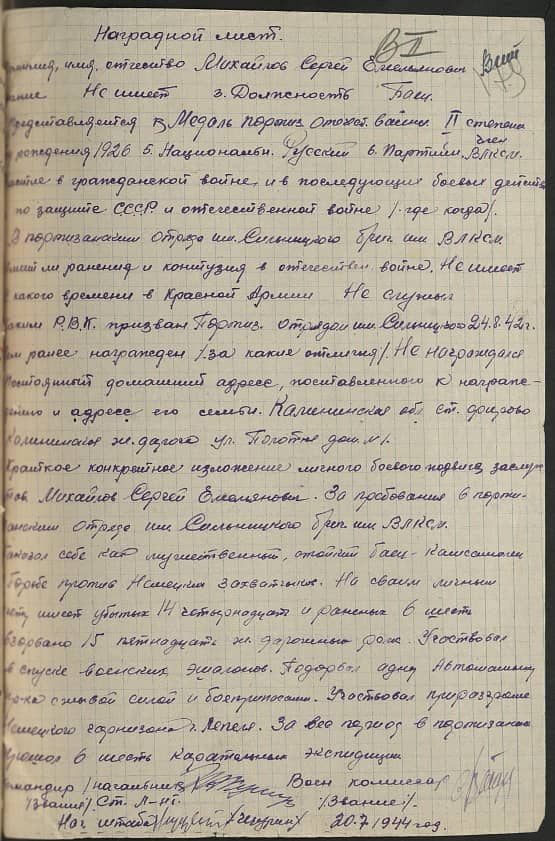 Наградной лист.
В II
имя, отчество Михайлов Сергей Емельянович
Не имеет 3. Должность Боец.
Представляется к Медаль партиз. отечест. войны II степени
рождения 1926 5. Национальн. Русский 6. Партийн. член ВЛКСМ.
в гражданской войне, и в последующих боевых действ
по защите СССР и отечественной войне /где когда/.
В партизанском отряде им. Сильницкого бриг. им. ВЛКСМ
ли ранения и контузия в отечествен. войне. Не имеет
какого времени в Красной Армии Не служил
каким Р.В.К. призван Партиз. отрядом им. Сильницкого 24.8.42 г.
ранее награжден /за какие отличия/. Не награждался
Постоянный домашний адресс, поставленного к награж-
дению и адресс его семьи. Калининская обл. ст.
Калининская ж. дорога ул. дом №1.
Краткое конкретное изложение личного боевого подвига заслуг
тов. Михайлов Сергей Емельянович. За пребования в парти-
занском отряде им. Сильницкого бриг. им. ВЛКСМ.
показал себе как мужественный, стойкий боец-камсамолец
борьбе против Немецких захватчиков. На своим личным
имеет убытых 14 четырнадцать и раненых 6 шесть
взорвано 15 пятнадцать ж. дорожных рельс. Участвовал
в спуске воинских эшалонов. Подорвал адну Автомашину
с живой силой и боеприпасами. Участвовал при разгроме
Немецкого гарнизона г. Лепеля. За весь период в партизанах
прошол 6 шесть карательных экспедиции
Командир /начальник Воен. комиссар
/звание/. Ст. Л-нт. /Звание/.
Нач. штаба 20.7.1944 год.